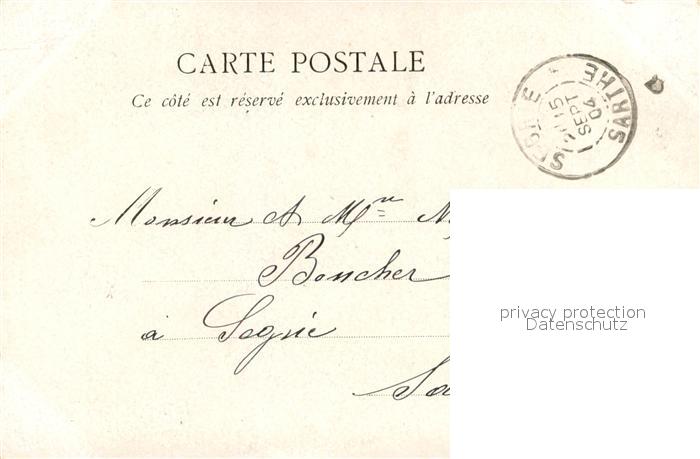 CARTE POSTALE
Ce côté est réservé exclusivement à l'adresse
SARTHE
15
SEPT
04
Monsieur & Mme
Boucher
à Segrie
privacy protection
Datenschutz